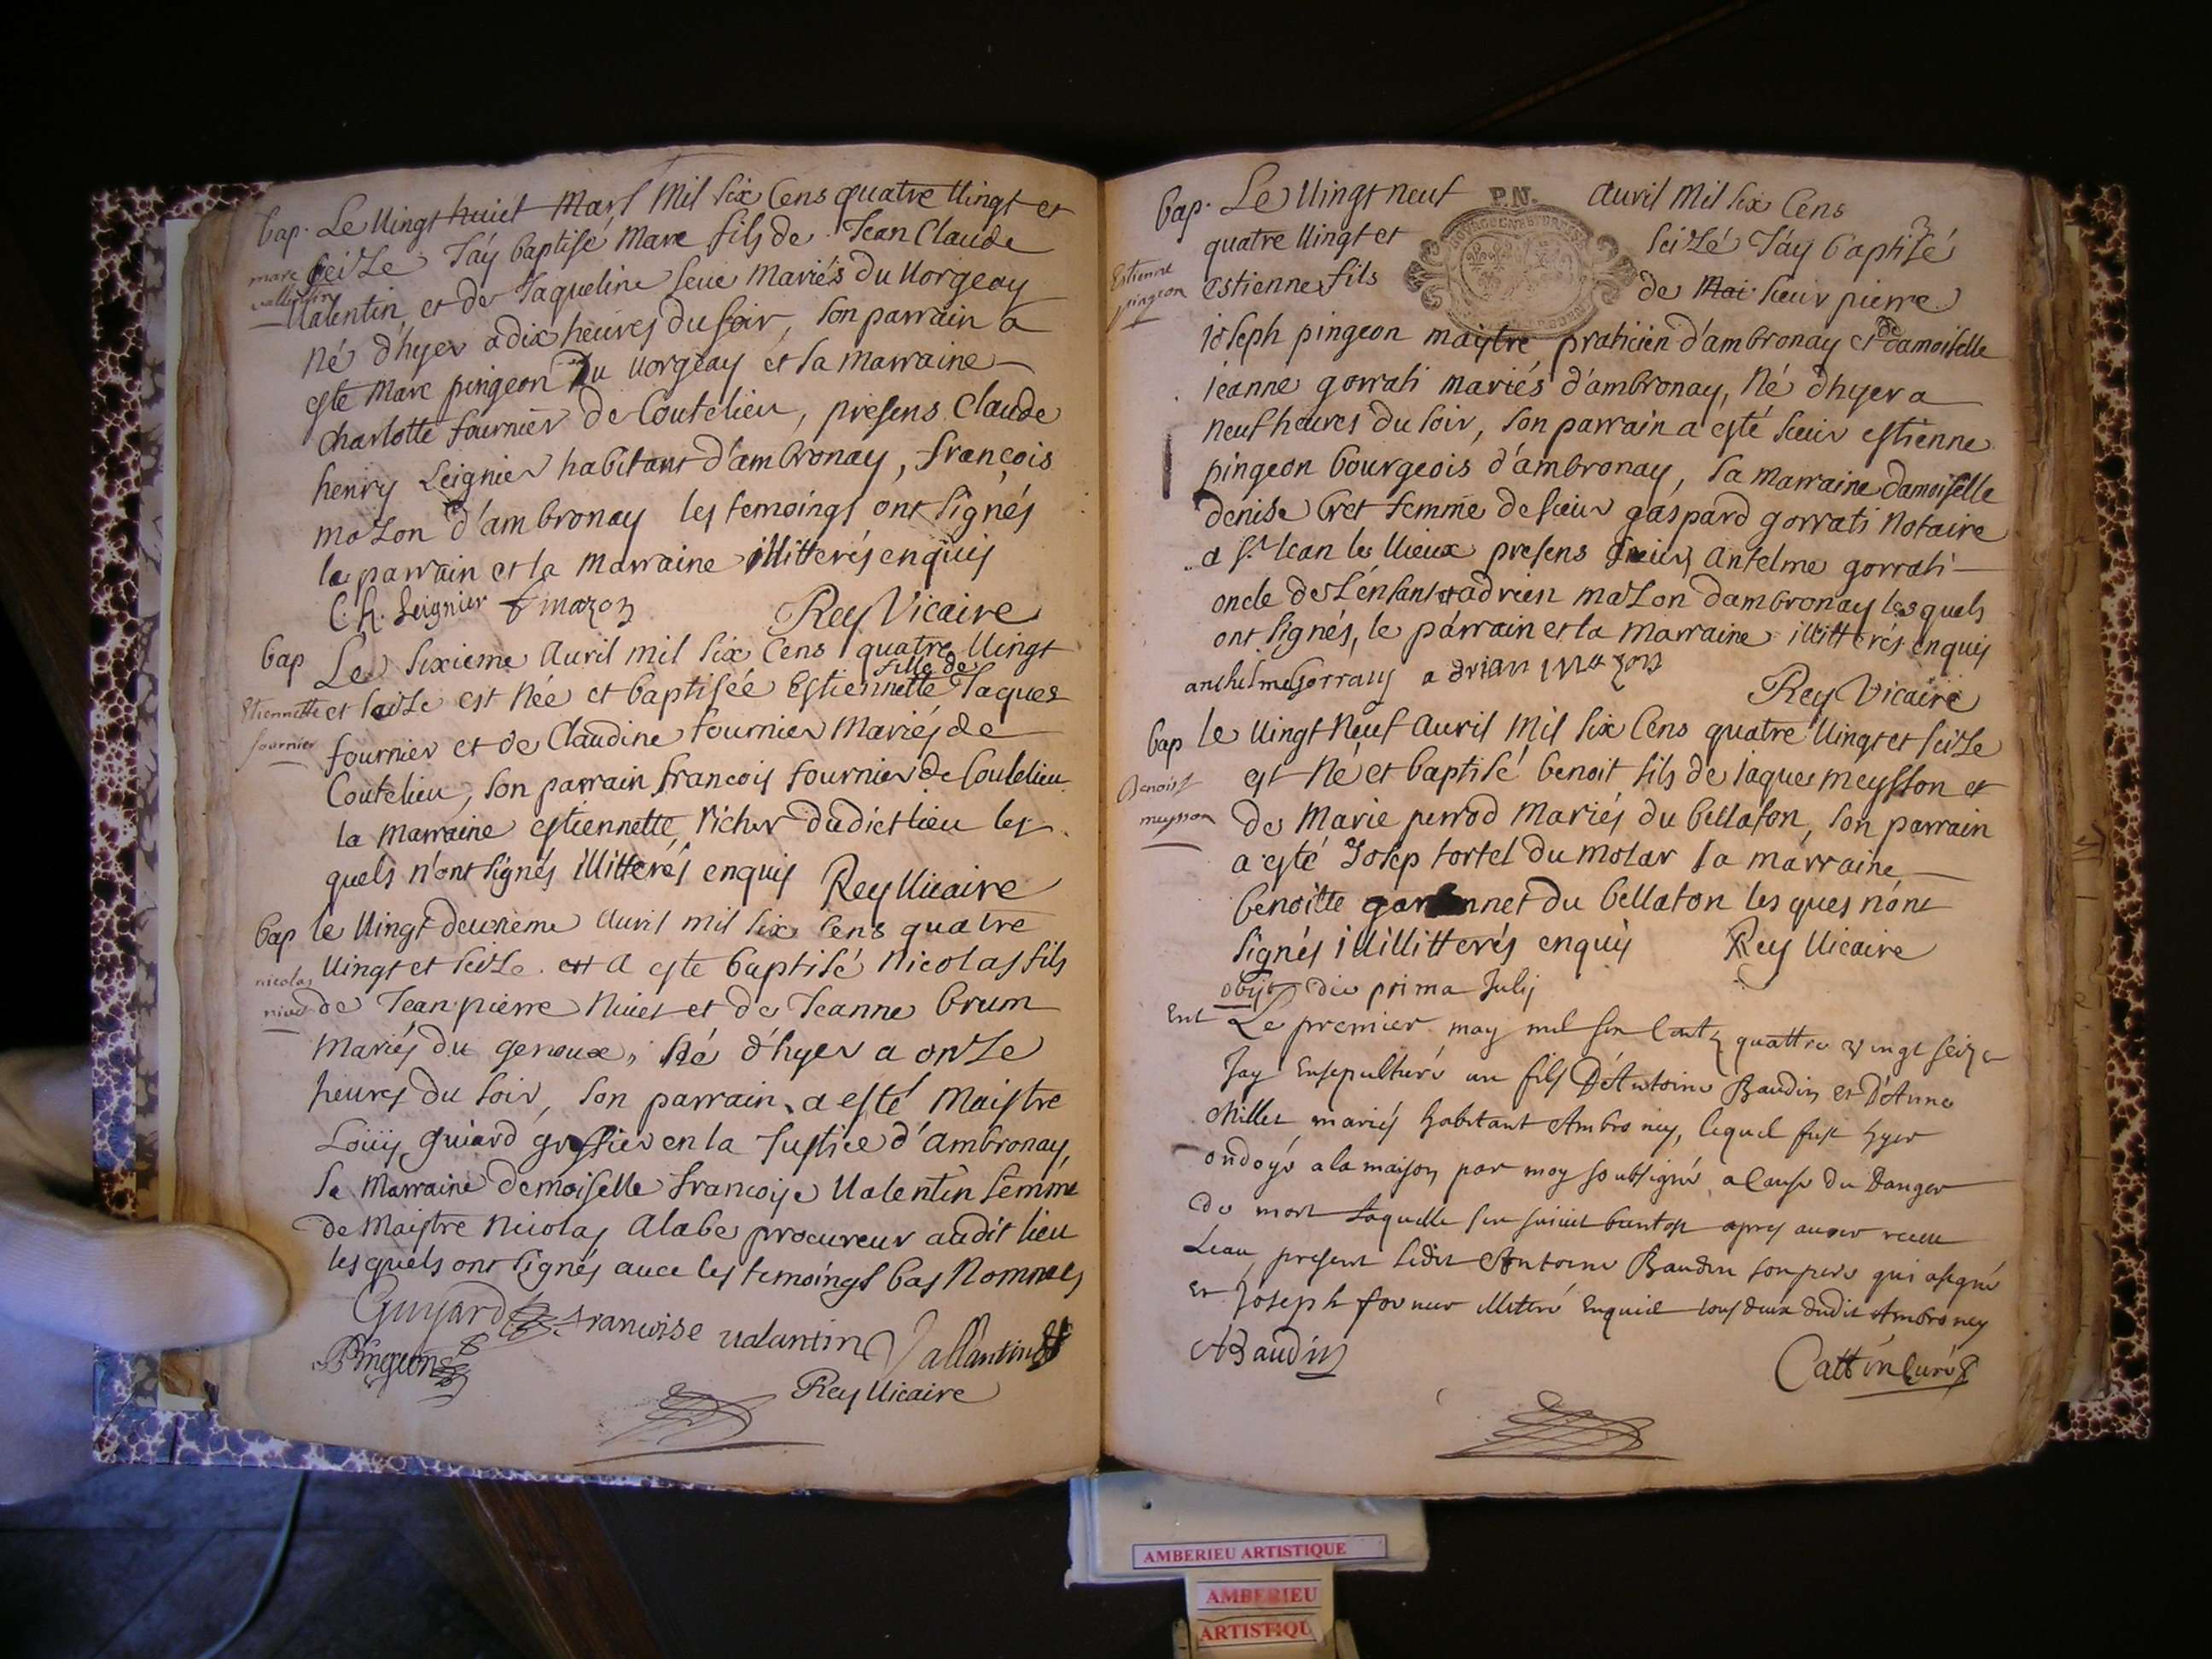 bap. Le Vingt huict Mars Mil six Cens quatre Vingt et
marc seize J'ay baptisé Marc fils de Jean Claude
vallentin Valentin et de Jaqueline seue Mariés du Vorgeay
Né d'hyer a dix heures du soir, son parrain a
esté Marc pingeon Du vorgeay et sa Marraine
Charlotte fournier de Coutelieu, presens Claude
henry Seignier habitant d'ambronay, françois
mazon d'ambronay les temoings ont signés
le parrain et la Marraine illitterés enquis
C. h. Seignier f mazon Rey Vicaire
bap Le sixieme Avril mil six Cens quatre Vingt
fille de
Etiennette et seize est Née et baptisée Estiennette Jaques
fournier fournier et de Claudine fournier Mariés de
Coutelieu, son parrain francois fournier de Coutelieu
la Marraine estiennette richer dudict lieu les
quels n'ont signés illitterés enquis Rey Vicaire
bap le Vingt deuxieme Avril mil six Cens quatre
nicolas Vingt et seize est a este baptisé Nicolas fils
nivet de Jean pierre Nivet et de Jeanne brum
Mariés du genoux, Né d'hyer a onze
heures du soir, son parrain a esté Maistre
Loüis guiard greffier en la Justice d'ambronay,
sa Marraine demoiselle francoise Valentin femme
de Maistre Nicolas Alabe procureur audit lieu
lesquels ont signés avec les temoings bas Nommés
Guyard francoise valantin Vallantin
Pingeon
Rey Vicaire
bap. Le Vingt neuf P.N. Avril Mil six Cens
quatre Vingt et seizé J'ay baptisé
Estienne pingeon estienne fils de Mai sieur pierre
joseph pingeon maytre praticien d'ambronay et de damoiselle
jeanne gorrati mariés d'ambronay, Né d'hyer a
neuf heures du soir, son parrain a esté sieur estienne
pingeon bourgeois d'ambronay, sa marraine damoiselle
denise bret femme de sieur gaspard gorrati Notaire
a St Jean le Vieux presens sieur Antelme gorrati
oncle de l'enfant et adrien mazon d'ambronay lesquels
ont signés, le parrain et la marraine illitterés enquis
anthelme Gorraty adrian mazon
Rey Vicaire
bap le Vingt Neuf Avril Mil six Cens quatre Vingt et seize
Benoist est Né et baptisé benoit fils de jaques meysson et
meysson de Marie perrod Mariés du bellaton, son parrain
a esté Josep tortel du molar sa marraine
benoitte du bellaton les ques n'ont
signés illitterés enquis Rey Vicaire
obijt die prima Julij
Ent Le premier may mil six Cents quattre vingt seize
Jay Ensepulturé un fils D'Antoine Baudin et D'Anne
Millet mariés habitant Ambroney, lequel fust hyer
ondoyé a la maison par moy soubsigné a Cause du Danger
de mort Laquelle s'en suivit bientost apres avoir receu
Leau, present Ledit Antoine Baudin son pere qui a signé
Et Joseph fornier illiteré Enquis tous deux dudit Ambroney
A Baudin
Cattin Curé
AMBERIEU ARTISTIQUE
AMBERIEU
ARTISTIQU